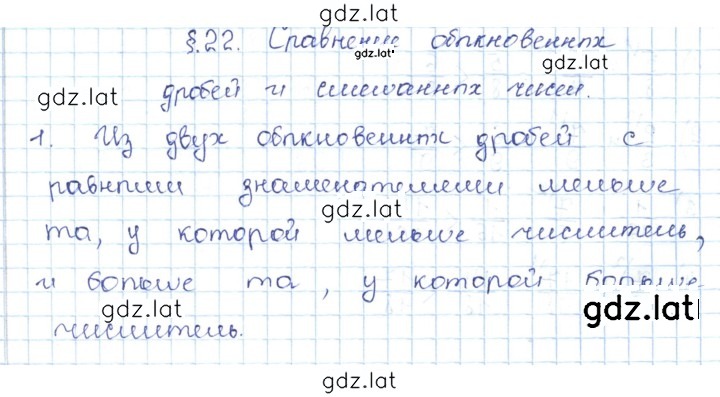 gdz.lat
§.22. Сравнение обыкновенных
gdz.lat gdz.lat
gdz.lat дробей и смешанных чисел.
1. Из двух обыкновенных дробей с
равными знаменателями меньше
gdz.lat
та, у которой меньше числитель,
и больше та, у которой больше
gdz.lat gdz.lat
числитель.
gdz.lat